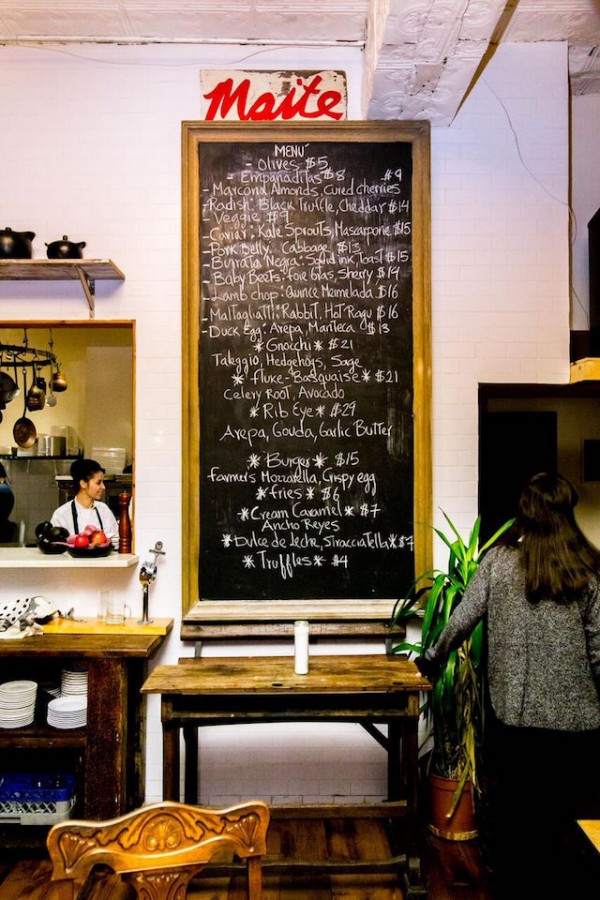 Maite
MENU´
- Olives $5
- Empanaditas $8
- Marcona Almonds, Cured cherries #9
- Radish: Black Truffle, Cheddar $14
Veggie $9
Caviar: Kale Sprouts, Mascarpone $15
- Pork Belly: Cabbage $13
- Burrata Negra: Squid ink, Toast $15
- Baby Beets: foie Gras, Sherry $14
- Lamb Chop: Quince Mermelada $16
- Maltagliatti: Rabbit, Hot Ragu $16
- Duck Egg: Arepa, Manteca $13
* Gnocchi * $21
Taleggio, Hedgehogs, Sage
* Fluke-Basquaise * $21
Celery Root, Avocado
* Rib Eye * $29
Arepa, Gouda, Garlic Butter
* Burger * $15
farmers Mozzarella, Crispy egg
* fries * $6
* Cream Caramel * $7
Ancho Reyes
* Dulce de leche, Stracciatella * $7
* Truffles * $4